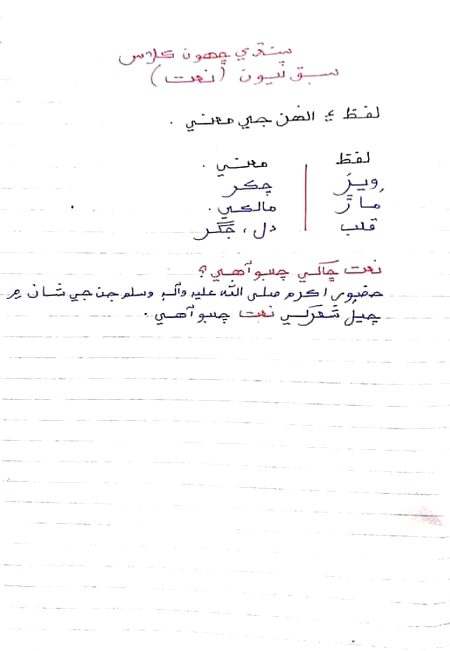 سنڌي ڇهون ڪلاس
سبق ٻيون (نعت)
لفظ ۽ انهن جي معني .
لفظ معني .
ويڙ چڪر
ماڙ مالڪي .
قلب دل ، جگر
نعت ڇاکي چئبو آهي ؟
حضور اڪرم صلی الله عليه وآلہ وسلم جن جي شان ۾
چيل شعرکي نعت چئبو آهي .